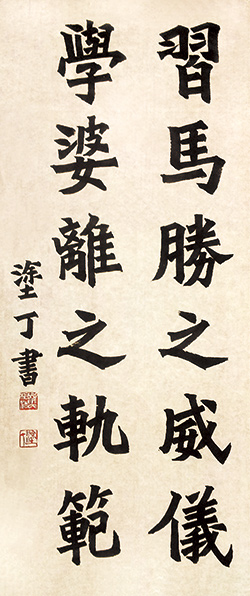 習馬勝之威儀
學婆離之軌範
塗丁書